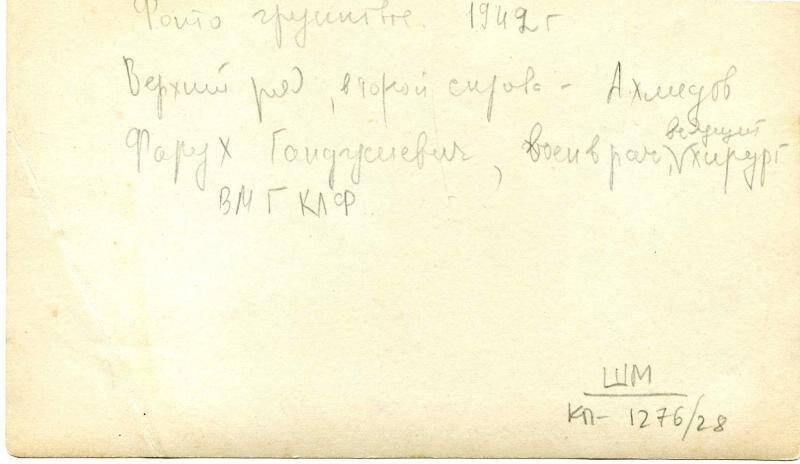 Фото групповое. 1942 г
Верхний ряд, второй справа - Ахмедов
Фарух Гандушевич, военврач, ведущий хирург
ВМГ КЛФ
ШМ
КП- 1276/28